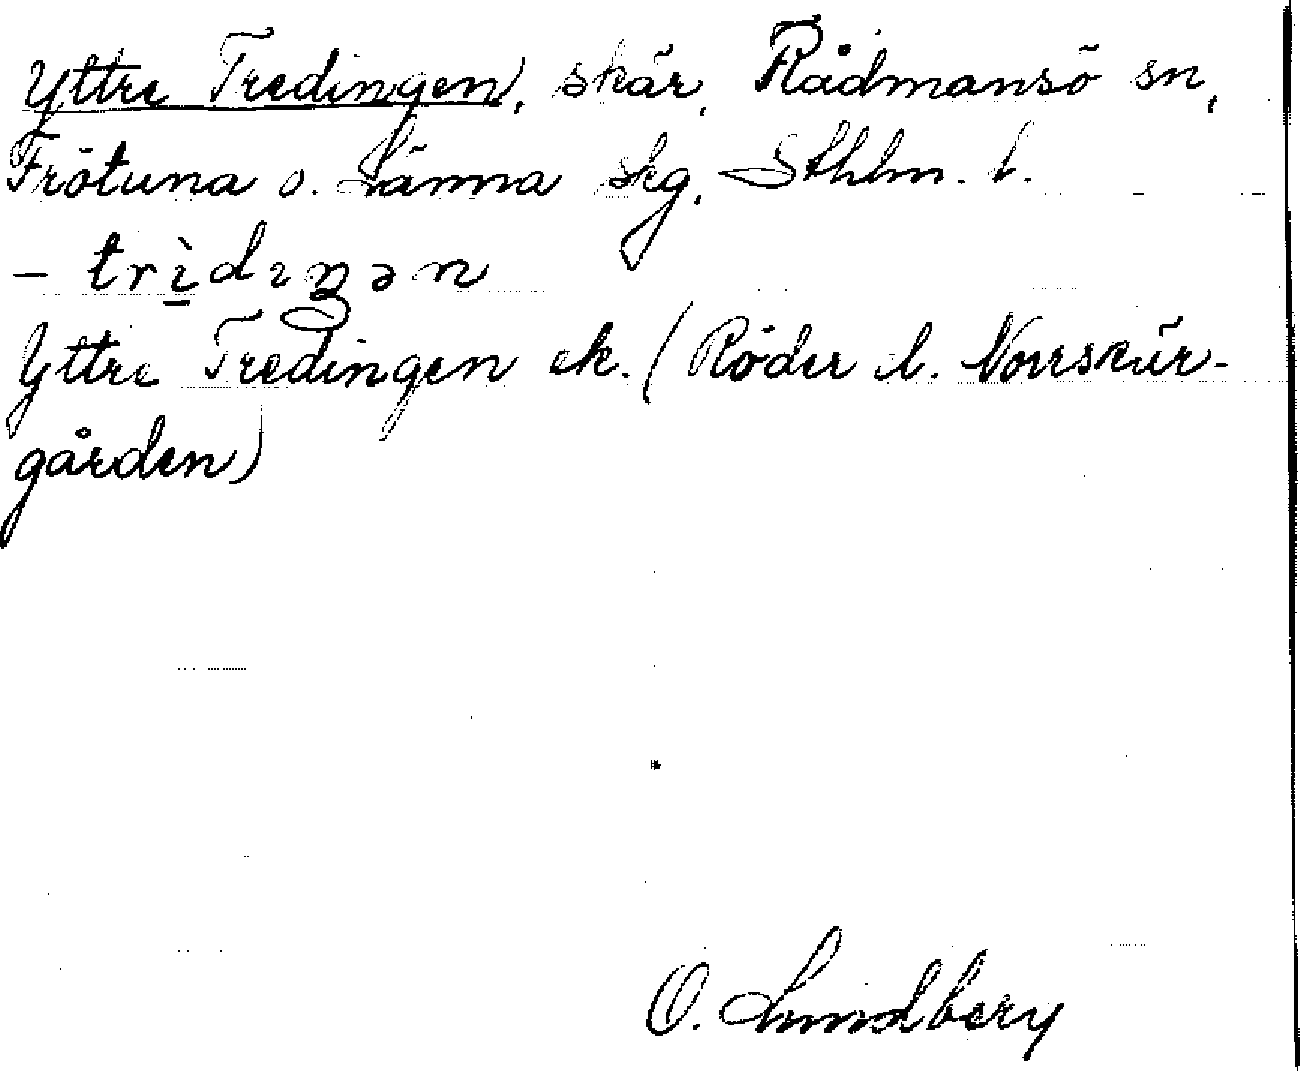 Yttre Tredingen, skär, Rådmansö sn,
Frötuna o. Länna skg, Sthlm. l.
– trìdıŋən
Yttre Tredingen ek. (Röder o. Norrskär-
gården)
O. Lundberg